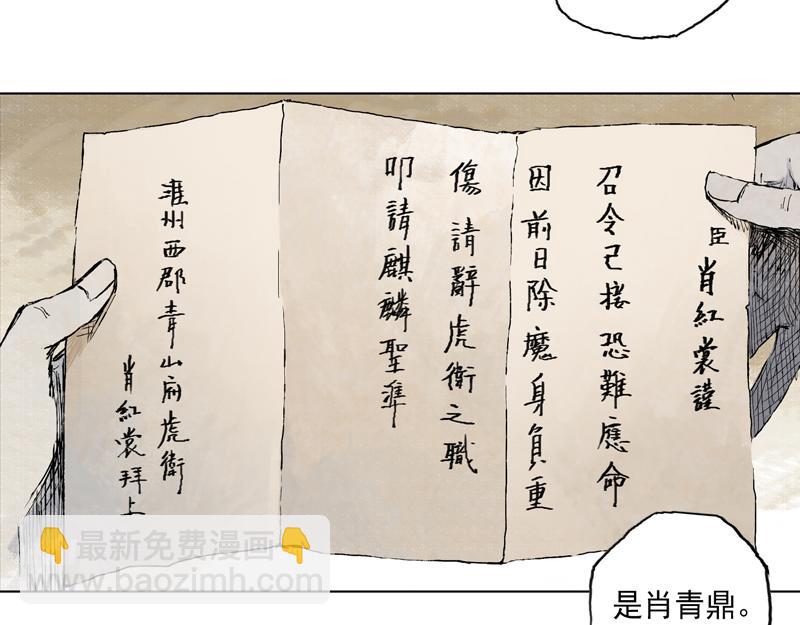 臣肖紅裳謹
召令已接恐難應命
因前日除魔身負重
傷請辭虎衛之職
叩請麒麟聖準
雍州西郡青山府虎衛
肖紅裳拜上
是肖青鼎。
👇最新免费漫画👇
www.baozimh.com